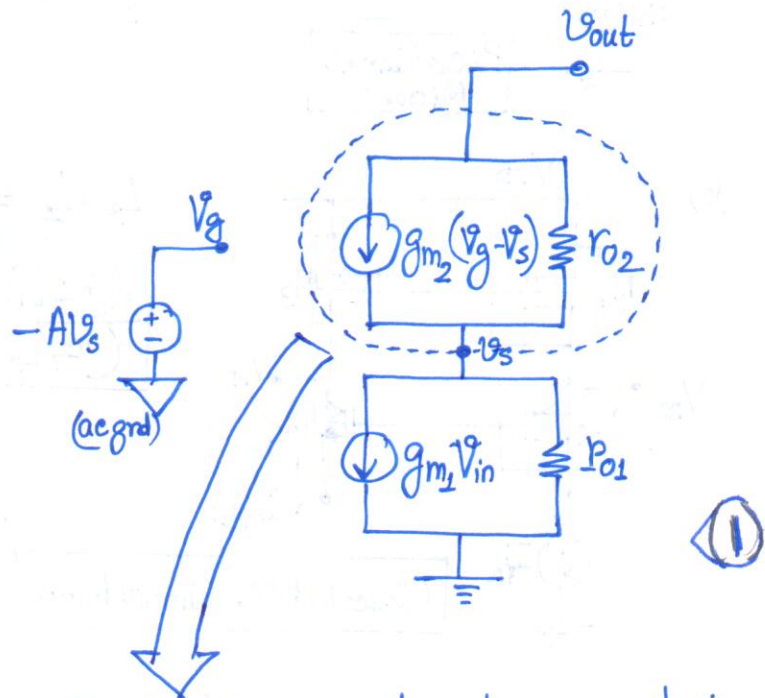 Vout
Vg
gm2(Vg-Vs)
ro2
-AVs
+
-
Vs
(ac gnd)
gm1Vin
ro1
1